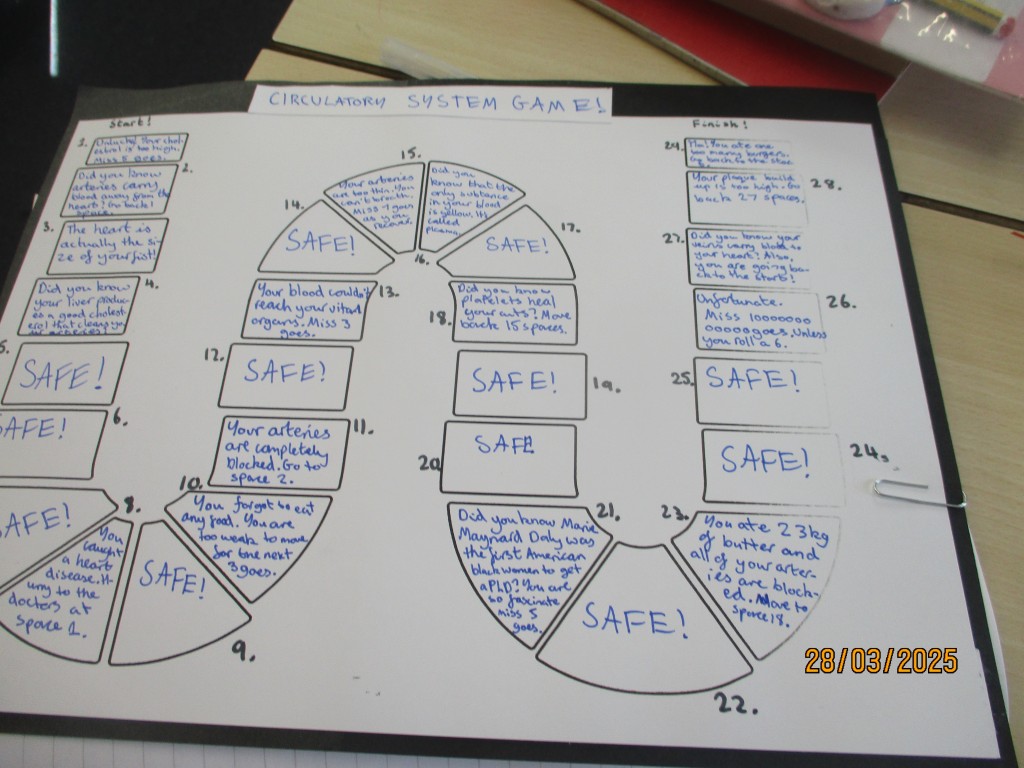 CIRCULATORY SYSTEM GAME!
Start!
1.
Unlucky! Your chol-
estrol is too high.
Miss 5 goes.
2.
Did you know
arteries carry
blood away from the
heart! Go back 1
space.
3.
The heart is
actually the si-
ze of your fist!
4.
Did you know
your liver produc-
es a good cholest-
erol that cleans yo-
ur arteries?
5.
SAFE!
6.
SAFE!
SAFE!
8.
You
caught
a heart
disease. H-
urry to the
doctors at
space 1.
9.
SAFE!
10.
You forgot to eat
any food. You are
too weak to move
for the next
3 goes.
11.
Your arteries
are completely
blocked. Go to
space 2.
12.
SAFE!
13.
Your blood couldn't
reach your vital
organs. Miss 3
goes.
14.
SAFE!
15.
Your arteries
are too thin. You
can't breath.
Miss 1 goes
as you
recover.
16.
Did you
know that the
only substance
in your blood
is yellow. It's
called
plasma.
17.
SAFE!
18.
Did you know
platelets heal
your cuts? Move
back 15 spaces.
19.
SAFE!
20
SAFE
21.
Did you know Marie
Maynard Daly was
the first American
black women to get
a PhD? You are
so fascinate
miss 5
goes.
22.
SAFE!
23.
You ate 23kg
of butter and
all of your arter-
ies are block-
ed. Move to
space 18.
24.
SAFE!
25.
SAFE!
26.
Unfortunate.
Miss 10000000
00000goes. Unless
you roll a 6.
27.
Did you know your
veins carry blood to
your heart! Also,
you are going ba-
ck to the start!
28.
Your plaque build
up is too high. Go
back 27 spaces.
29.
Ha! You ate one
too many burgers.
Go back to the start.
Finish!
28/03/2025